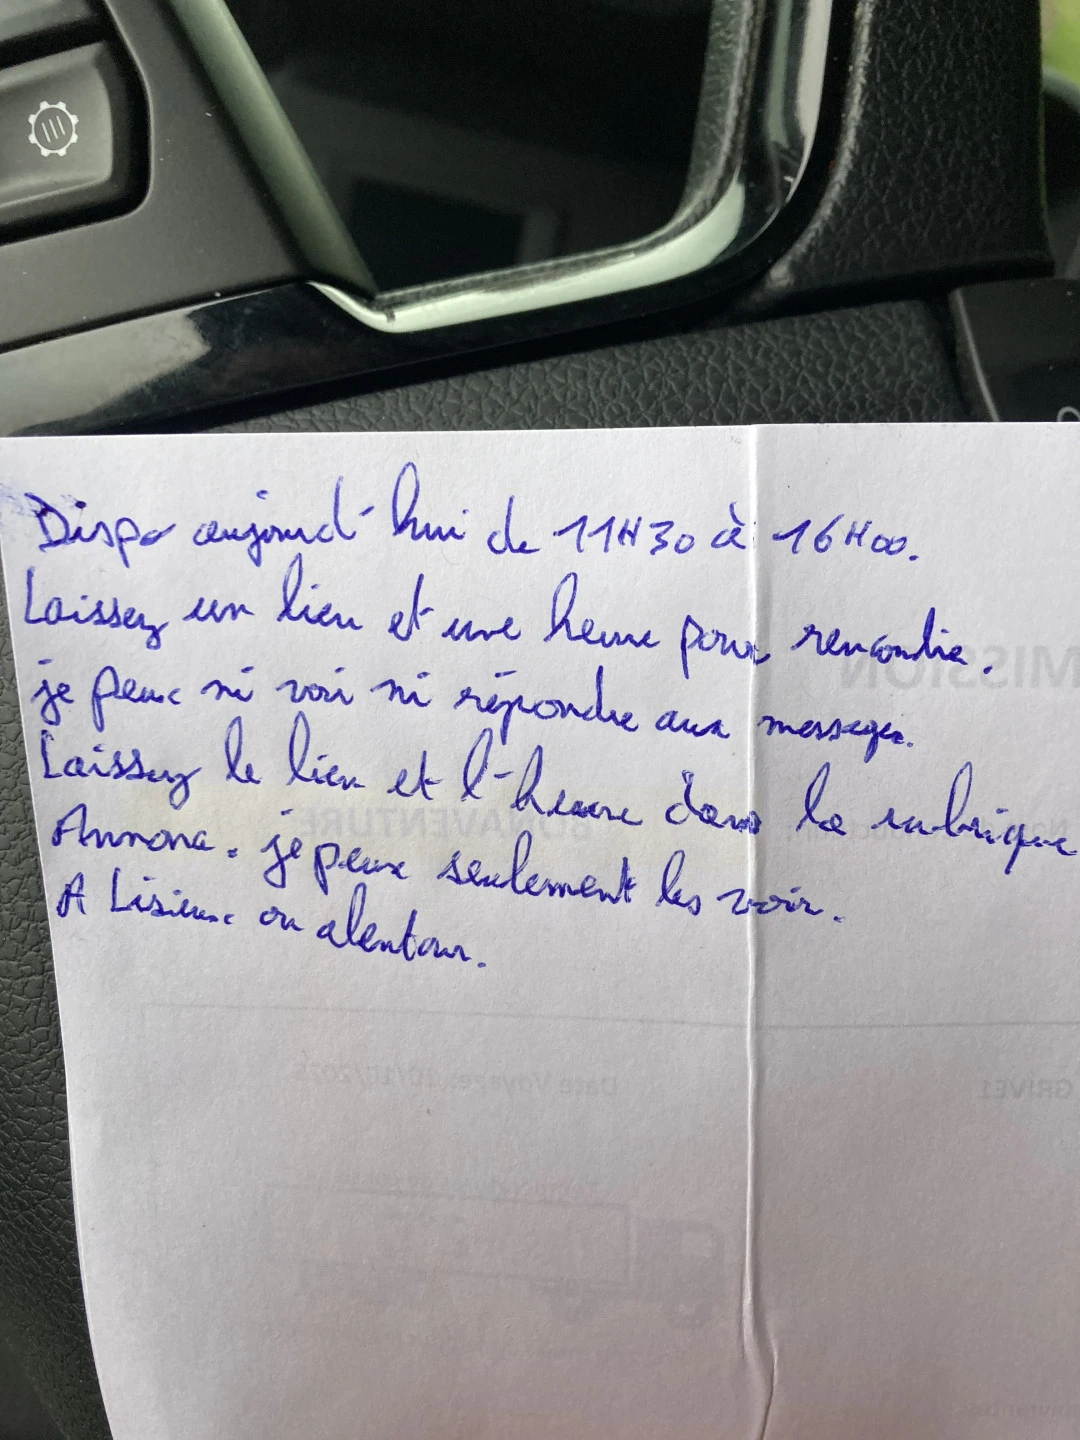 Dispo aujourd'hui de 11H30 à 16H00.
Laissez un lieu et une heure pour rencontre.
je peux ni voir ni répondre aux messages.
Laissez le lieu et l'heure dans la rubrique
Annonce. je peux seulement les voir.
A Lisieux ou alentour.
MISSION
BONAVENTURE
Date Voyage: 10/10/2025
GRIVE1